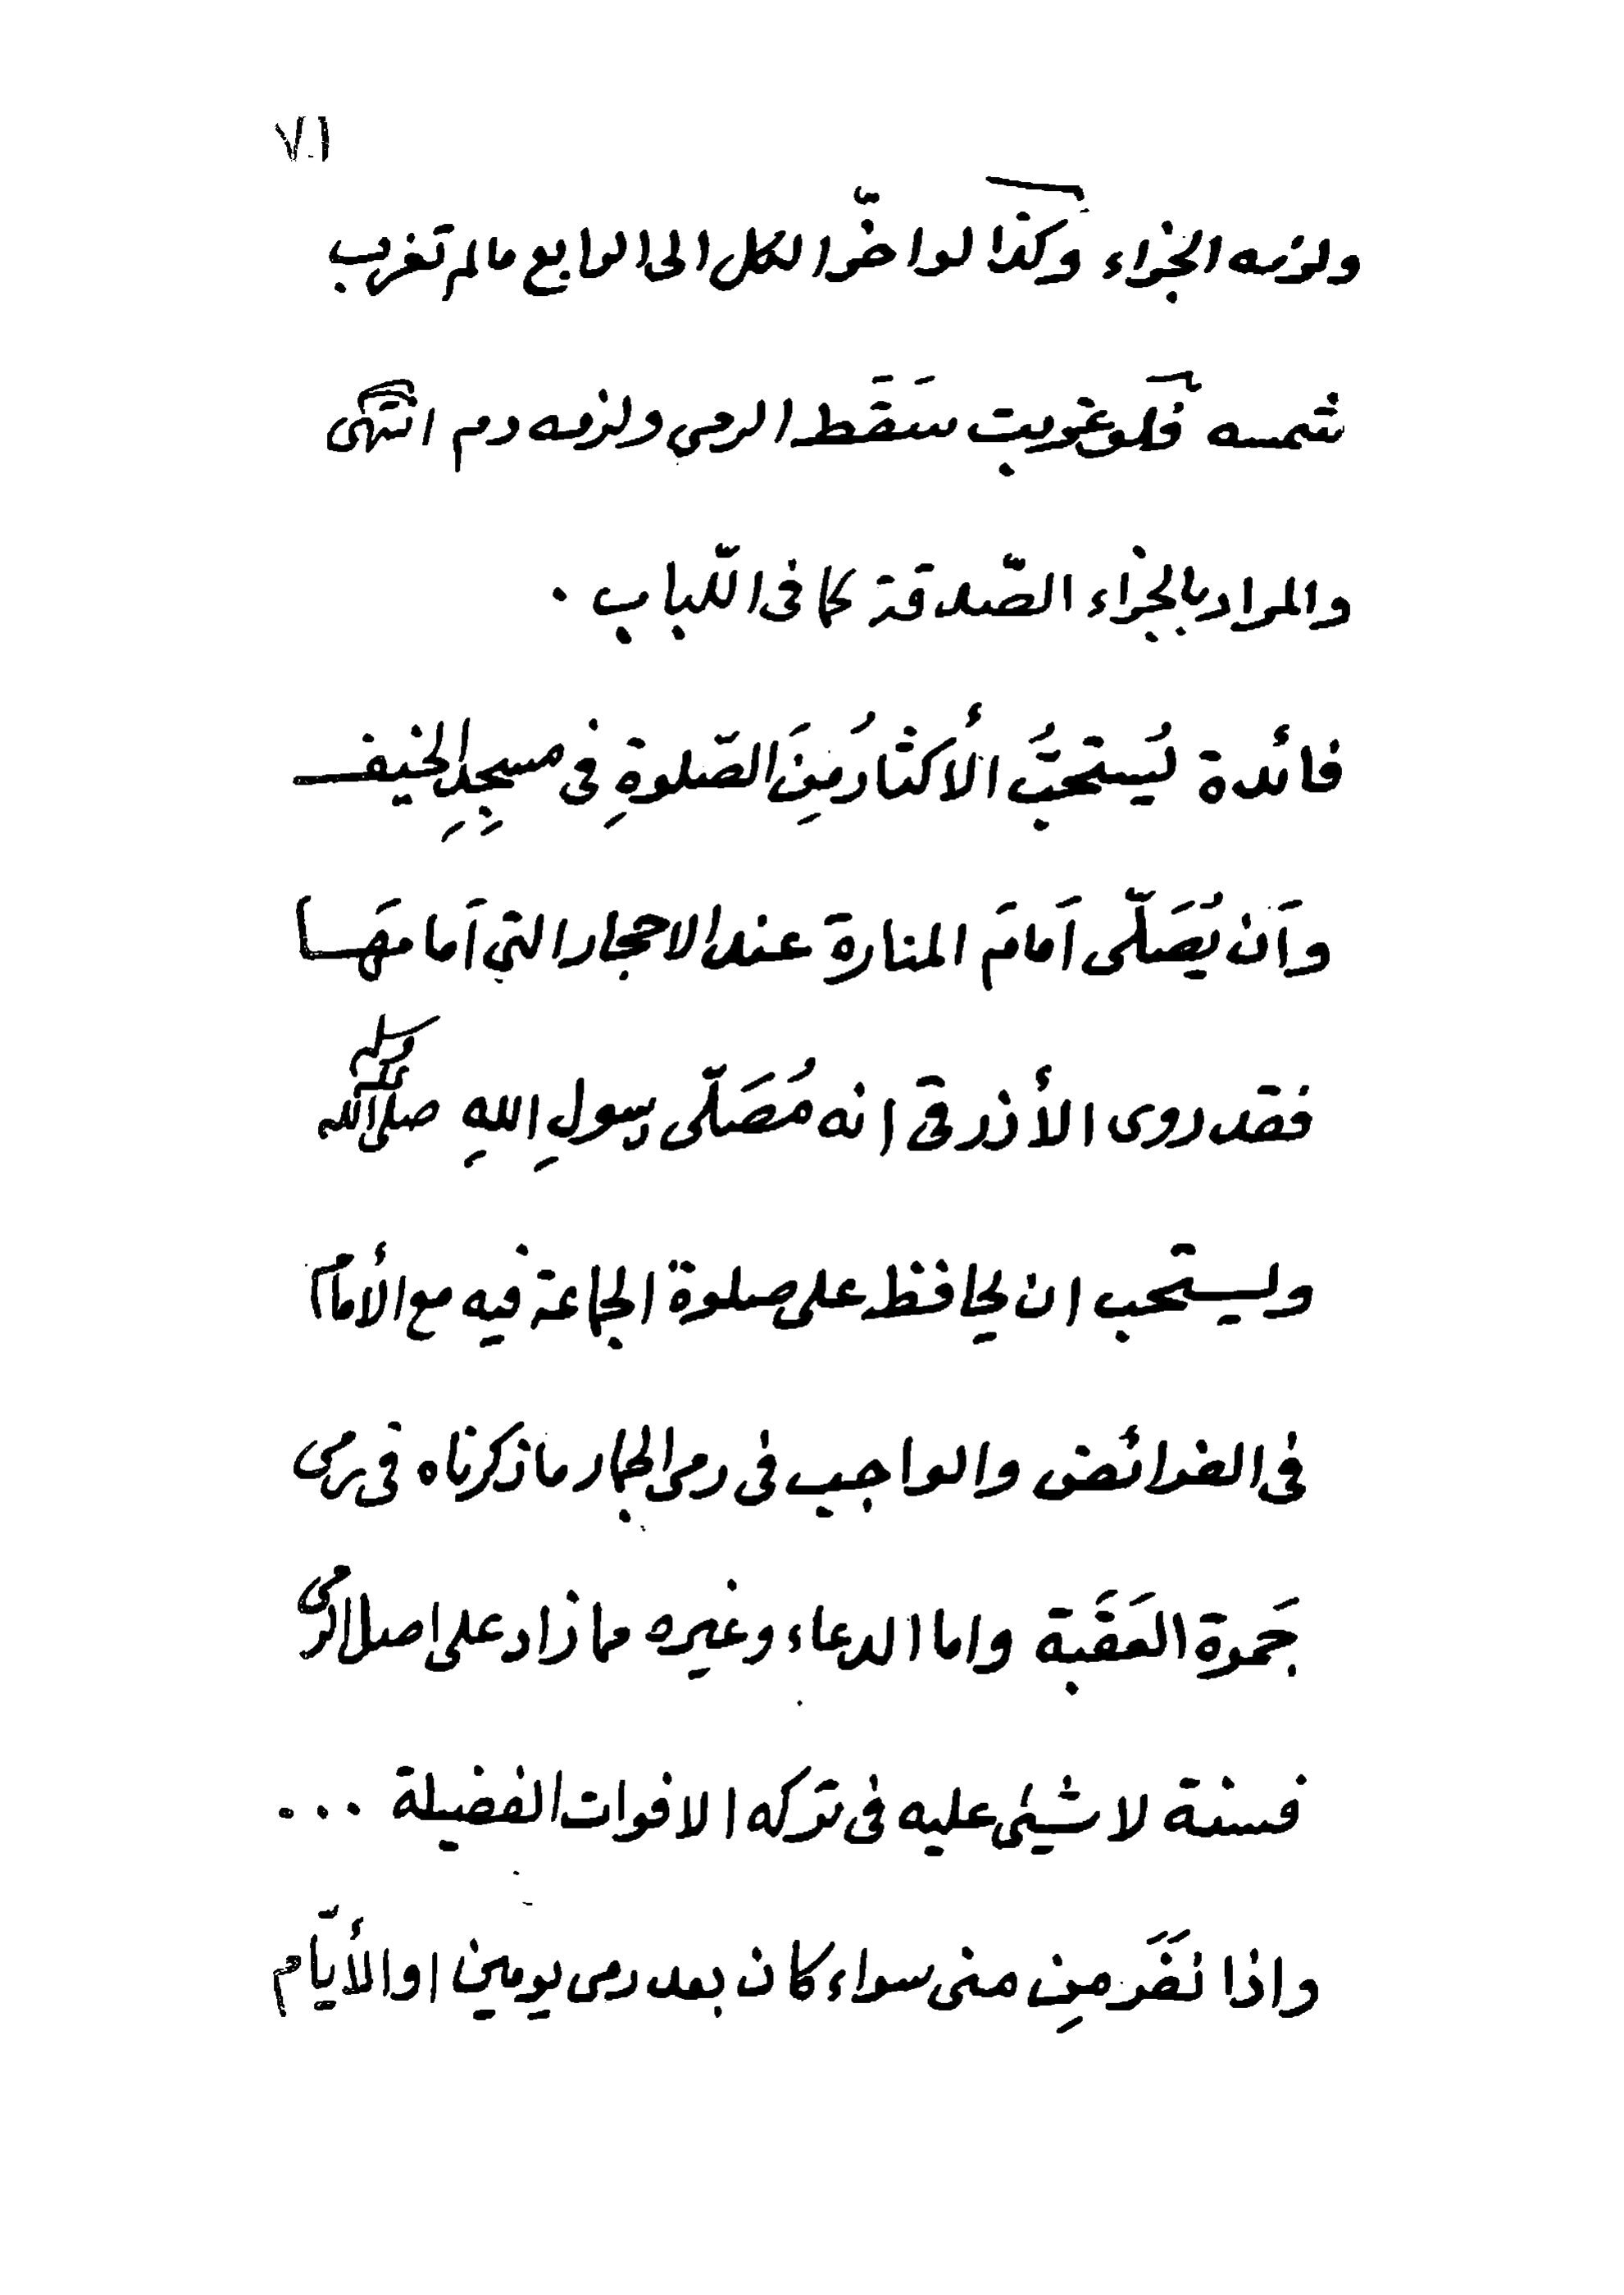 ٧١
ولزمه الجزاء وكذا لو اخّر الكل الى الرابع مالم تغرب
شمسه فلو غربت سَقَط الرمى ولزمه دم انتهى
والمراد بالجزاء الصّدقة كما فى اللّباب .
فائدة يُستحبُّ الأكثارُ مِنَ الصّلوةِ فى مسجِدِ الخيف
وَاَن يُصَلّى اَمامَ المنارة عند الاحجار التى اَمامهَا
فقد روى الأذرقى انه مُصَلّى رسولِ اللهِ صلى الله عليه وسلم
ويستحب ان يحافظ على صلوة الجماعة فيه مع الأمام
فى الفرائض والواجب فى رمى الجمار ماذكرناه فى رمى
جَمرة العَقَبة واما الدعاء وغيره مما زاد على اصل الرمى
فسنة لا شيئى عليه فى تركه الا فوات الفضيلة ...
واذا نَفَر مِن منى سواء كان بعد رمى يومين او الأيّام